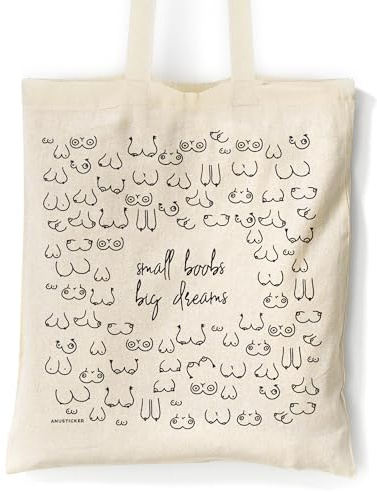 small boobs
big dreams
ANUSTICKER